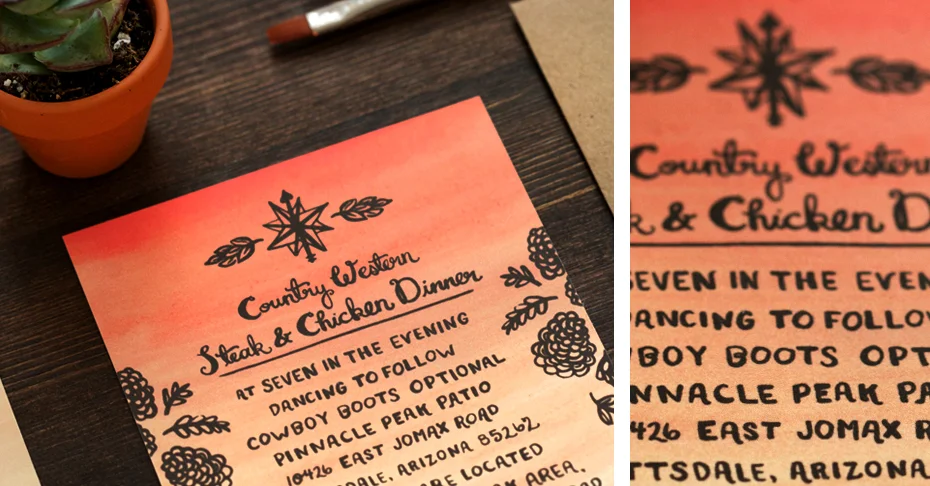 Country Western
Steak & Chicken Dinner
AT SEVEN IN THE EVENING
DANCING TO FOLLOW
COWBOY BOOTS OPTIONAL
PINNACLE PEAK PATIO
10426 EAST JOMAX ROAD
TSDALE, ARIZONA 85262
RE LOCATED
X AREA,
OAD
Country Western
k & Chicken D
SEVEN IN THE EVEN
DANCING TO FOLLOW
BOY BOOTS OPT
NNACLE PEAK PA
426 EAST JOMAX R
TTSDALE, ARIZONA